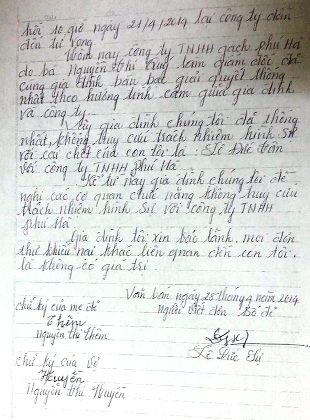 hồi 10 giờ ngày 21/4/2014 tại công ty dẫn
đến tử vong
Hôm nay công ty TNHH gạch phú Hà
do bà Nguyễn Thị Cung làm giám đốc đã
cùng gia đình bàn bạc giải quyết thống
nhất theo hướng tình cảm giữa gia đình
và công ty
Vậy gia đình chúng tôi đã thống
nhất, không truy cứu trách nhiệm hình sự
với cái chết của con tôi là: Lê Đức Văn
với công ty TNHH phú Hà
Kể từ nay gia đình chúng tôi đề
nghị các cơ quan chức năng không truy cứu
trách nhiệm hình sự với công ty TNHH
phú Hà
Gia đình tôi xin bảo lãnh, mọi đơn
thư khiếu nại khác liên quan đến con tôi,
là không có giá trị
Văn bản, ngày 25 tháng 4 năm 2014
chữ ký của mẹ đẻ
Người viết đơn bố đẻ
Thêm
Nguyễn thị Thêm
Lê Đức
chữ ký của vợ
Huyền
Nguyễn Thị Huyền